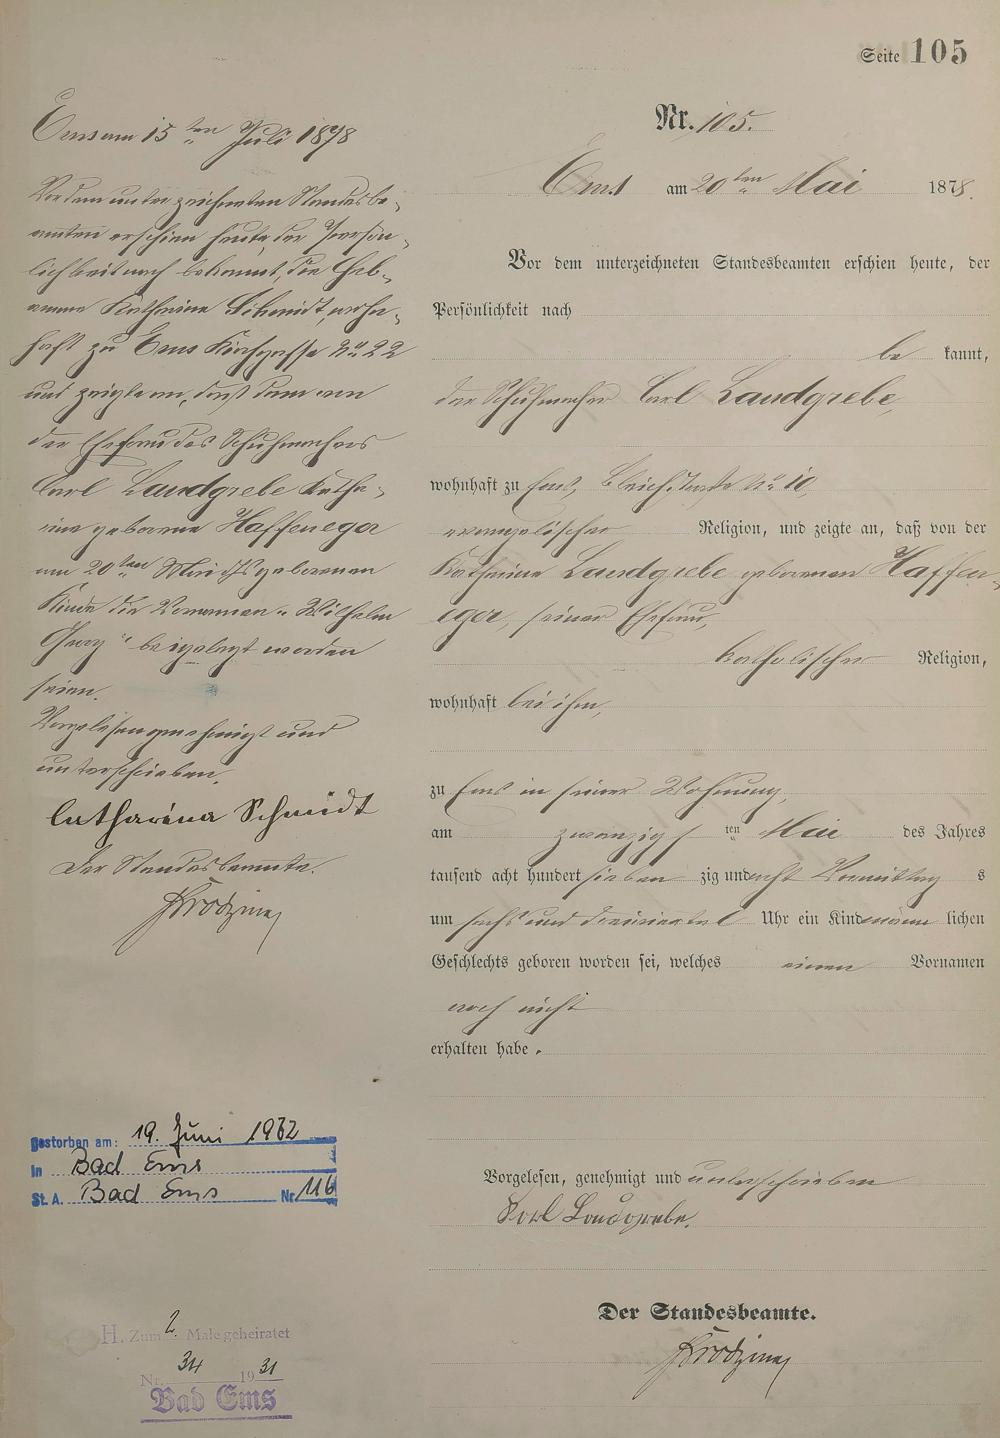 Seite 105
Nr. 105.
Ems am 20ten Mai 1878.
Vor dem unterzeichneten Standesbeamten erschien heute, der
Persönlichkeit nach
be kannt,
der Schuhmacher Carl Landgrebe,
wohnhaft zu Ems, Bleichstraße No 10,
evangelischer Religion, und zeigte an, daß von der
Katharina Landgrebe geborenen Haffen-
eger, seiner Ehefrau,
katholischer Religion,
wohnhaft bei ihm,
zu Ems in seiner Wohnung,
am zwanzigsten Mai des Jahres
tausend acht hundert sieben zig und acht Vormittag s
um sechs und dreiviertel Uhr ein Kind männ lichen
Geschlechts geboren worden sei, welches einen Vornamen
noch nicht
erhalten habe.
Vorgelesen, genehmigt und unterschrieben
Karl Landgrebe.
Der Standesbeamte.
Ems am 15ten Juli 1878
Vor dem unterzeichneten Standesbe-
amten erschien heute, der Persön-
lichkeit nach bekannt, die Heb-
amme Katharina Schmidt, wohn-
haft zu Ems Kirchgasse No 22
und zeigte an, daß dem von
der Ehefrau des Schuhmachers
Carl Landgrebe Katha-
rina geborene Haffeneger
am 20ten Mai geborenen
Kinde die Vornamen "Wilhelm
Georg" beigelegt worden
seien.
Vorgelesen genehmigt und
unterschrieben.
Catharina Schmidt
Der Standesbeamte.
gestorben am: 19. Juni 1962
in Bad Ems
St. A. Bad Ems Nr. 116
H. Zum 2. Male geheiratet
Nr. 34 1931
Bad Ems